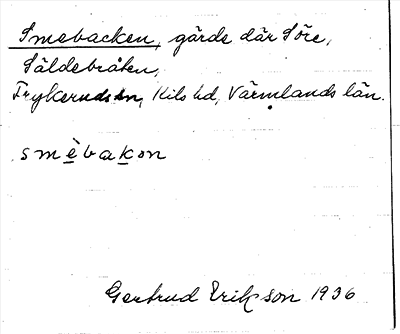 Smebacken, gärde där Söre,
Säldebråten,
Frykeruds sn, Kils hd, Värmlands län.
smèbakon
Gertrud Erikson 1936